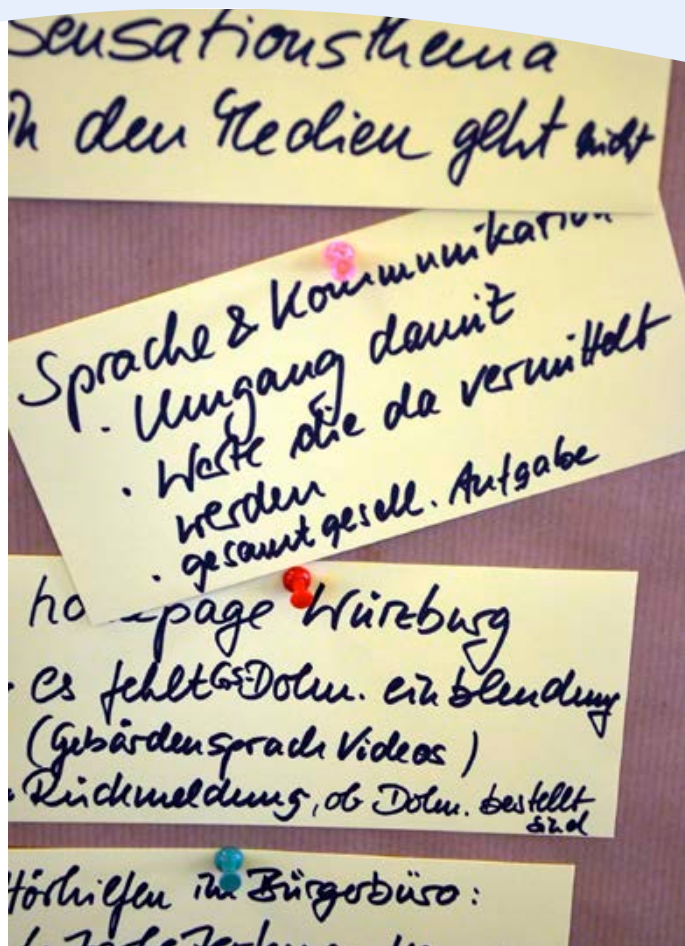 Sensationsthema
in den Medien geht nicht
Sprache & Kommunikation
· Umgang damit
· Werte die da vermittelt
werden
· gesamtgesell. Aufgabe
homepage Würzburg
- es fehlt GS-Dolm. einblendung
(Gebärdensprach Videos)
- Rückmeldung, ob Dolm. bestellt
sind
Hörhilfen im Bürgerbüro: